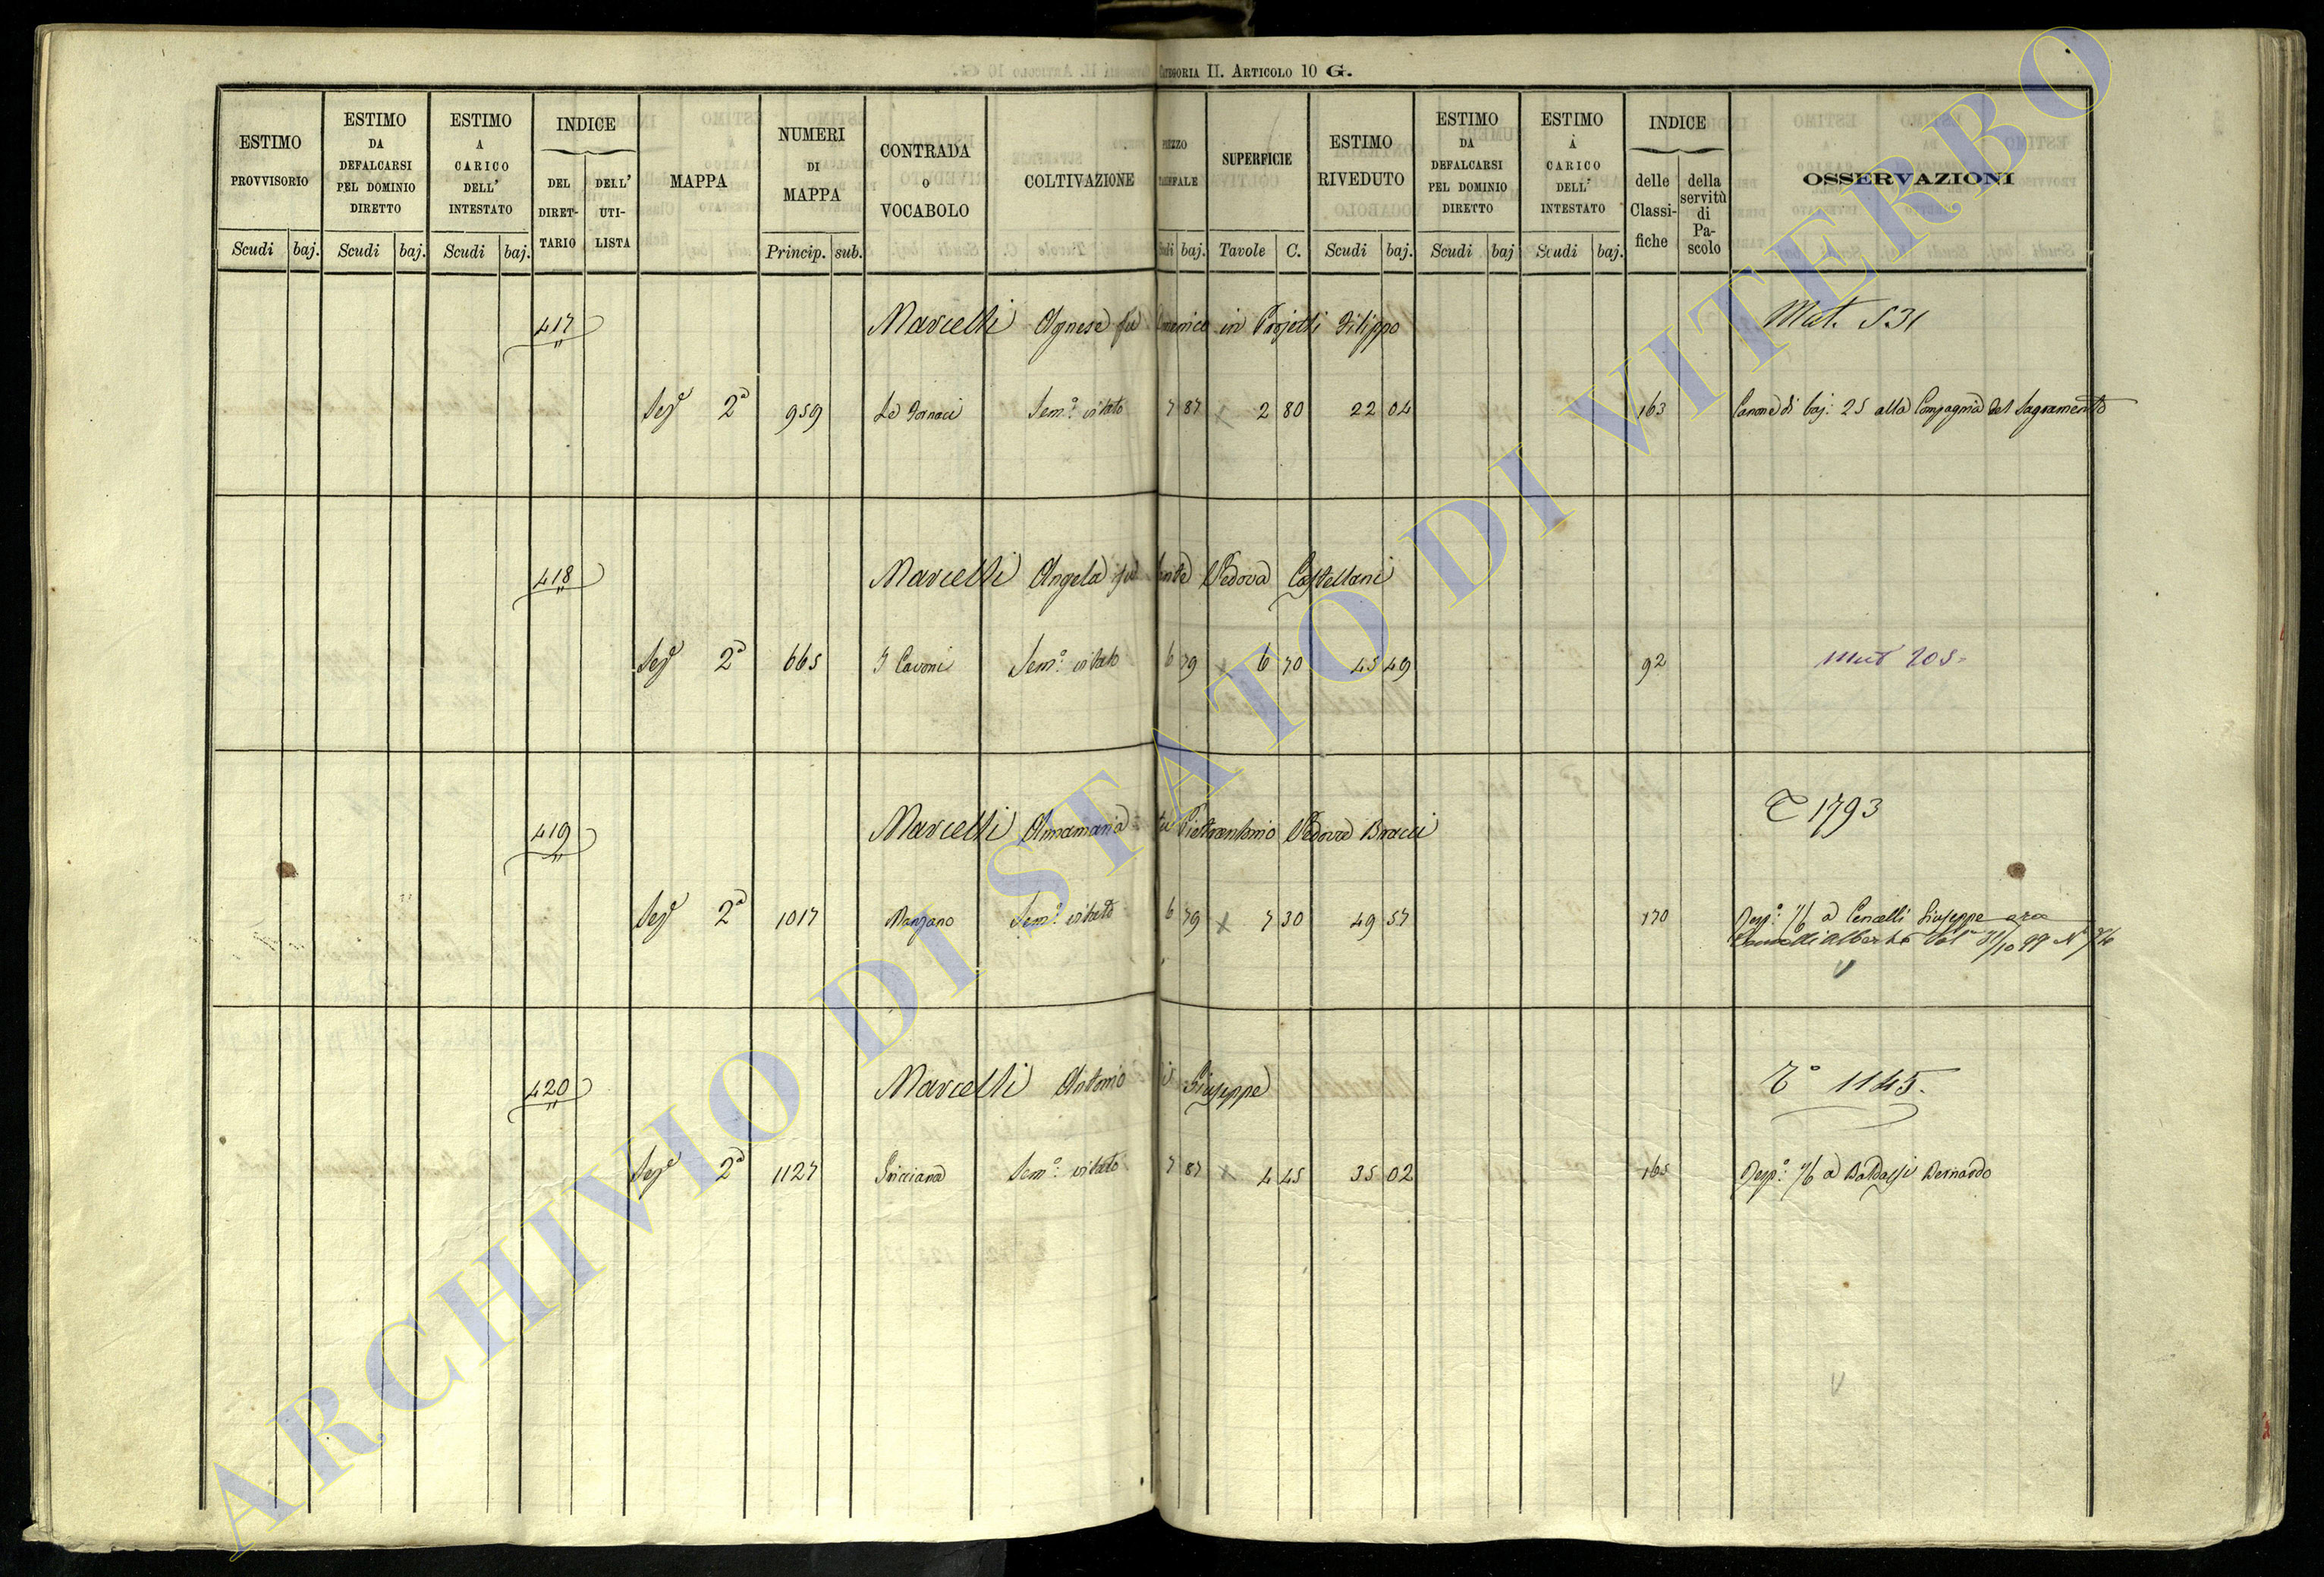 CATEGORIA II. ARTICOLO 10 G.
ESTIMO PROVVISORIO
Scudi baj.
ESTIMO DA DEFALCARSI PEL DOMINIO DIRETTO
Scudi baj.
ESTIMO A CARICO DELL' INTESTATO
Scudi baj.
INDICE
DEL DIRET-
TARIO
DELL' UTI-
LISTA
MAPPA
NUMERI DI MAPPA
Princip. sub.
CONTRADA O VOCABOLO
COLTIVAZIONE
baj.
SUPERFICIE
Tavole C.
ESTIMO RIVEDUTO
Scudi baj.
ESTIMO DA DEFALCARSI PEL DOMINIO DIRETTO
Scudi baj
ESTIMO À CARICO DELL' INTESTATO
Scudi baj.
INDICE
delle Classi-
fiche
della servitù di Pa-
scolo
OSSERVAZIONI
417 Marcelli Agnese fu in Projetti Filippo Mut. 531
Sez.e 2a 959 Le Fornaci Sem.o vitato 7 87 2 80 22 04 163 Canone di baj: 25 alla Compagnia del Sagramento
418 Marcelli Angela fu Vedova Castellani
Sez.e 2a 665 I Cavoni Sem.o vitato 6 79 6 70 45 49 92 Mut 205
419 Marcelli Annamaria fu Pietrantonio Vedova Bracci T 1793
Sez.e 2a 1017 Manzano Sem.o vitato 6 79 7 30 49 57 170 Resp.o 1/6 a Cencelli Giuseppe ora
420 Marcelli Antonio di Giuseppe To 1145.
Sez.e 2a 1127 Sem.o vitato 7 87 4 45 35 02 165 Resp.o 1/6 a Bernardo
ARCHIVIO DI STATO DI VITERBO